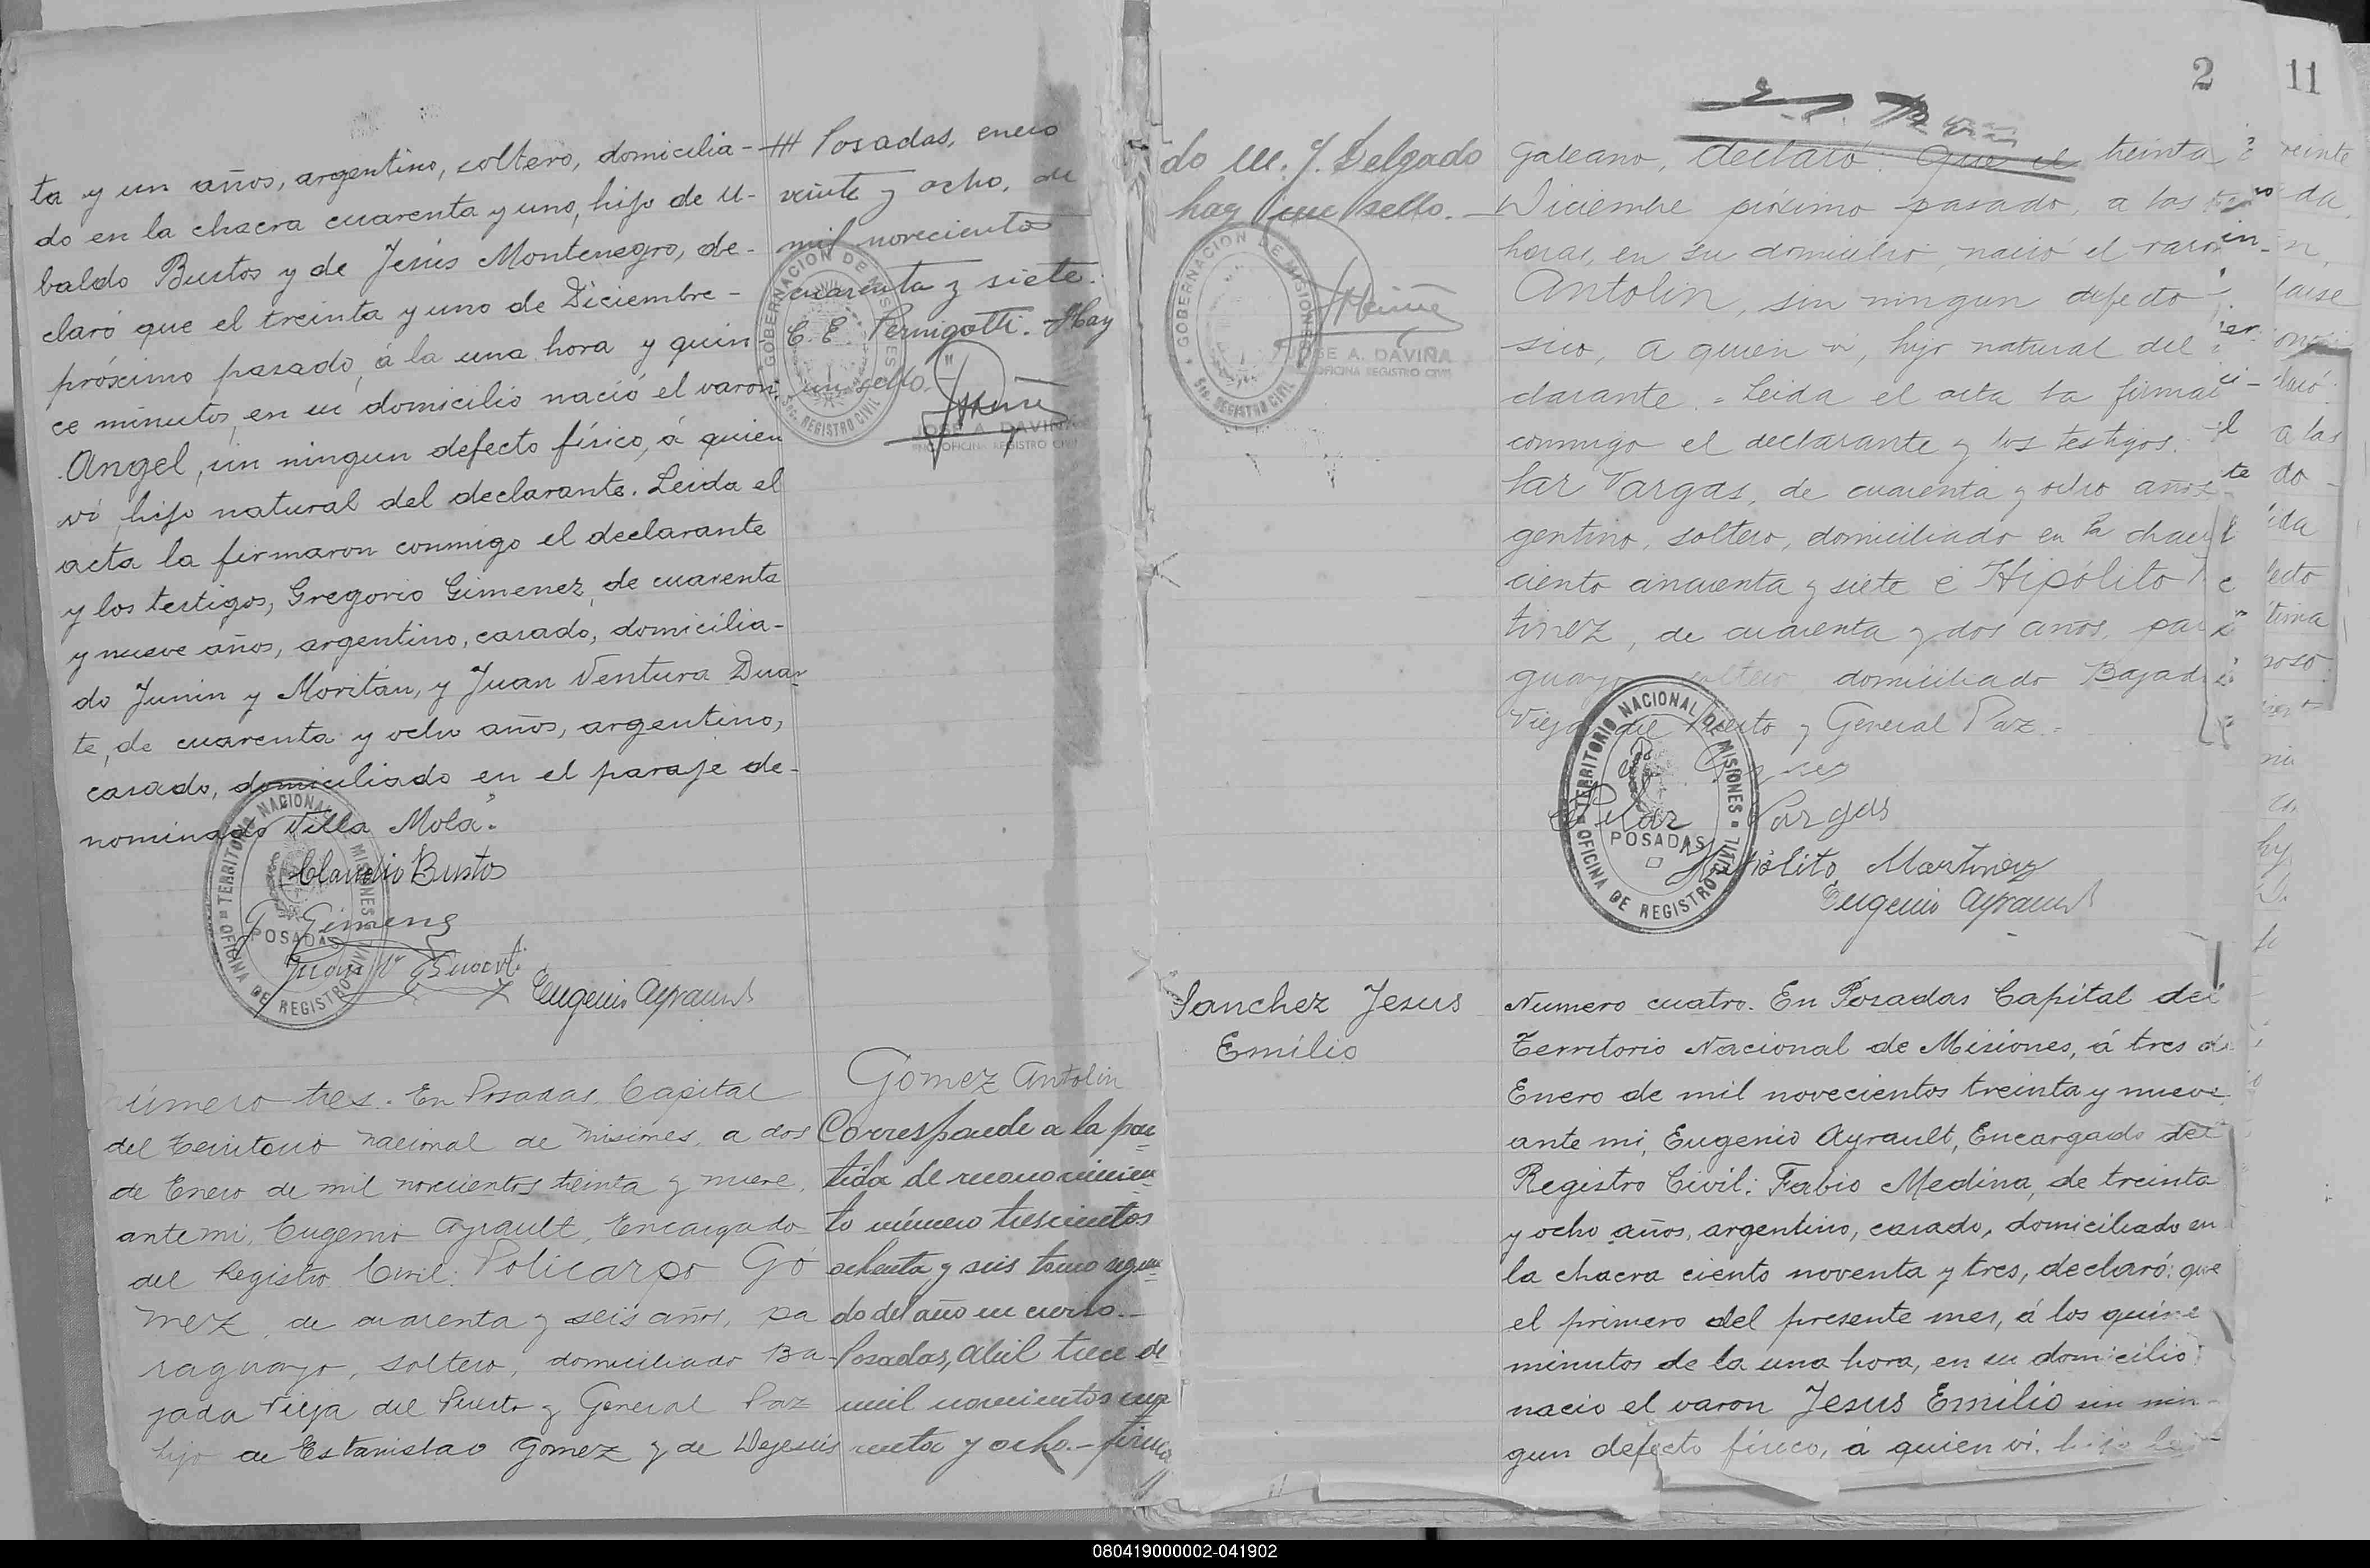 ta y un años, argentino, soltero, domicilia-
do en la chacra cuarenta y uno, hijo de U-
baldo Bustos y de Jesús Montenegro, de-
claró que el treinta y uno de Diciembre-
próximo pasado, á la una hora y quin
ce minutos, en su domicilio nació el varon
Angel, sin ningun defecto físico, á quien
vi, hijo natural del declarante. Leida el
acta la firmaron conmigo el declarante
y los testigos, Gregorio Gimenez, de cuarenta
y nueve años, argentino, casado, domicilia-
do Junin y Moritán, y Juan Ventura Duar
te, de cuarenta y ocho años, argentino,
casado, domiciliado en el paraje de-
nominado Villa Mola.
Claudio Bustos
G. Gimenez
Juan V. Duarte
Eugenio Ayrault
TERRITORIO NACIONAL DE MISIONES
POSADAS
OFICINA DE REGISTRO CIVIL
Posadas, enero
veinte y ocho, de
mil novecientos
cuarenta y siete.
C. E. Pernigotti. Hay
un sello."
GOBERNACION DE MISIONES
REGISTRO CIVIL
JOSE A. DAVIÑA
OFICINA REGISTRO CIVIL
número tres. En Posadas Capital
del Territorio Nacional de Misiones, a dos
de Enero de mil novecientos treinta y nueve,
ante mi, Eugenio Ayrault, Encargado
del Registro Civil: Policarpo Gó
mez, de cuarenta y seis años, pa
raguayo, soltero, domiciliado Ba-
jada Vieja del Puerto y General Paz
hijo de Estanislao Gomez y de Dejesús
Gomez Antolin
Corresponde a la par
tida de reconocimien
to número trescientos
ochenta y seis tomo segun
do del año en curso.-
Posadas, abril trece de
mil novecientos cua
renta y ocho.- firma
do M. J. Delgado
hay un sello.
GOBERNACION DE MISIONES
REGISTRO CIVIL
JOSE A. DAVIÑA
OFICINA REGISTRO CIVIL
2
11
Galeano, declaró: Que el treinta
Diciembre próximo pasado, a las
horas, en su domicilio, nació el varon
Antolin, sin ningun defecto
sico, a quien vi, hijo natural del
clarante. Leida el acta la firma
conmigo el declarante y los testigos.
lar Vargas, de cuarenta y ocho años
gentino, soltero, domiciliado en la chac
ciento cincuenta y siete é Hipólito
tinez, de cuarenta y dos años, par
guayo soltero domiciliado Bajad
Vieja del Puerto y General Paz.
Pilar Vargas
Hipólito Martinez
Eugenio Ayrault
TERRITORIO NACIONAL DE MISIONES
POSADAS
OFICINA DE REGISTRO CIVIL
Sanchez Jesus
Emilio
Numero cuatro. En Posadas Capital del
Territorio Nacional de Misiones, á tres de
Enero de mil novecientos treinta y nueve
ante mi, Eugenio Ayrault, Encargado del
Registro Civil: Fabio Medina, de treinta
y ocho años, argentino, casado, domiciliado en
la chacra ciento noventa y tres, declaró: que
el primero del presente mes, á los quince
minutos de la una hora, en su domicilio
nacio el varon Jesus Emilio sin nin-
gun defecto físico, á quien vi, hijo
080419000002-041902